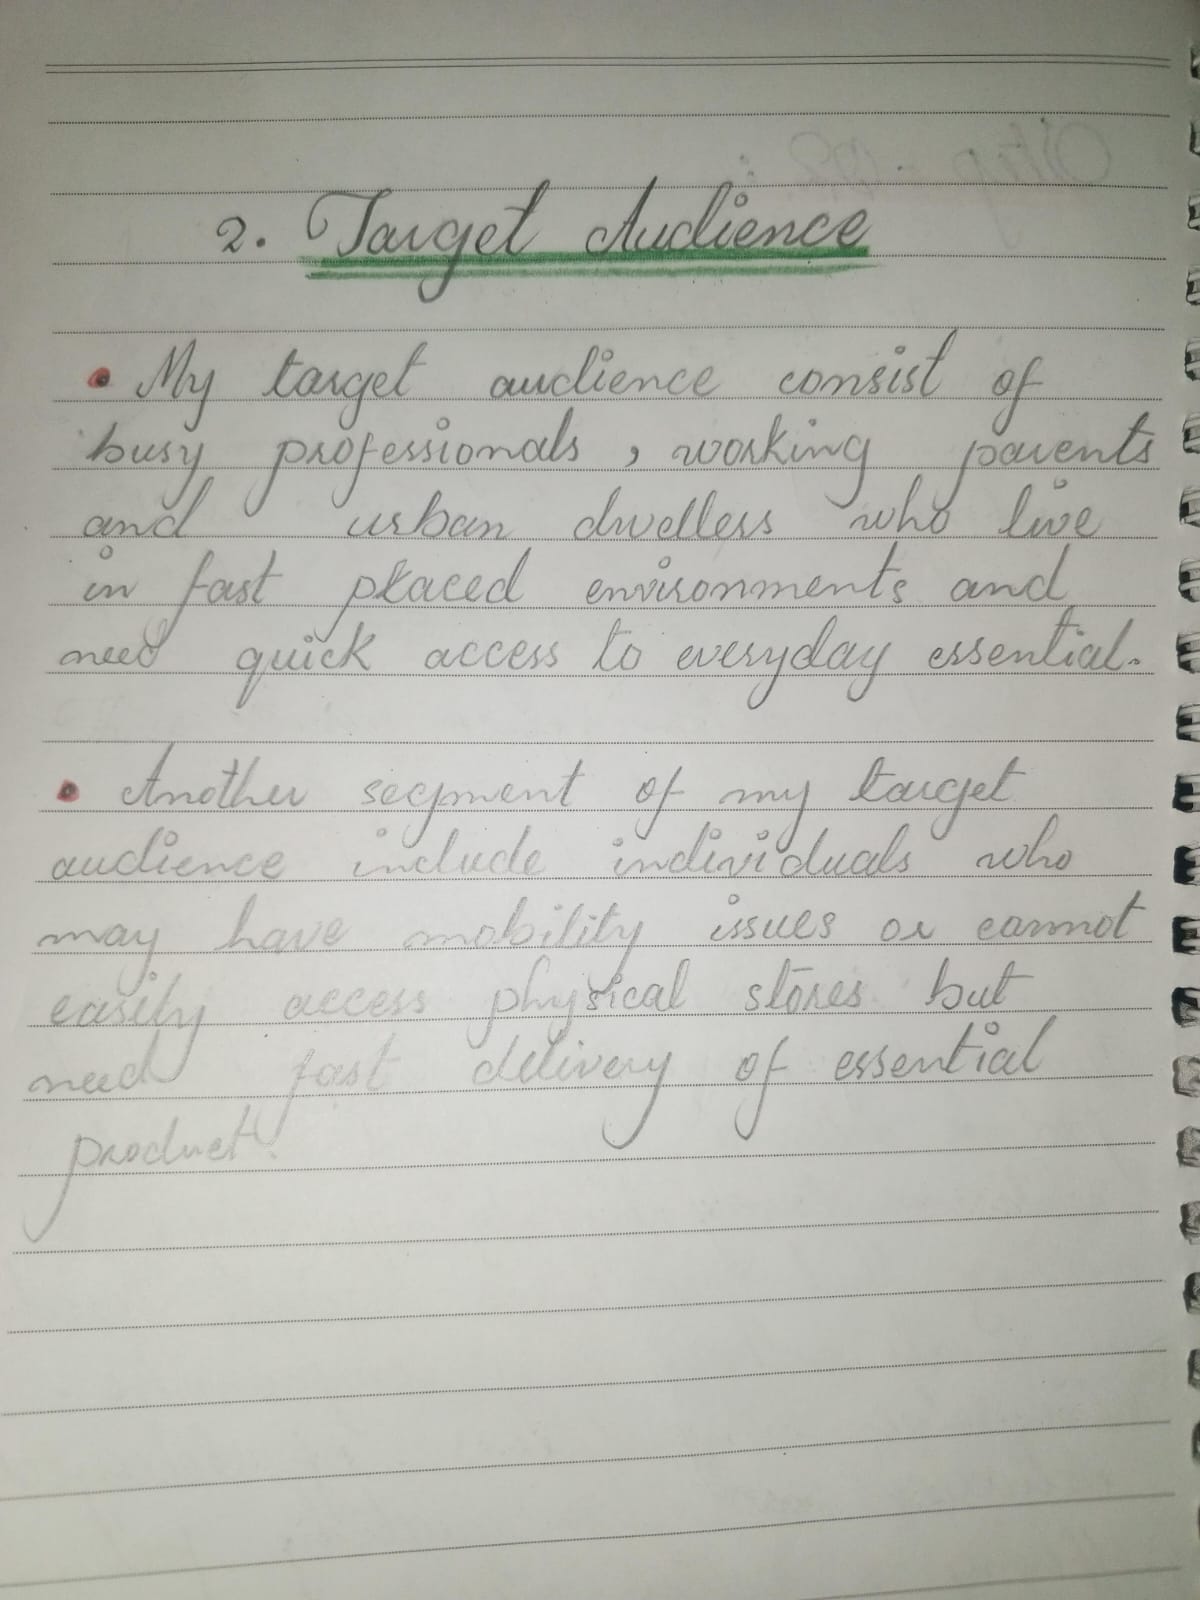 2. Target Audience
• My target audience consist of
busy professionals, working parents
and urban dwelless who live
in fast placed environments and
need quick access to everyday essential.
• Another segment of my target
audience include individuals who
may have mobility issues or cannot
easily access physical stores but
need fast delivery of essential
product.